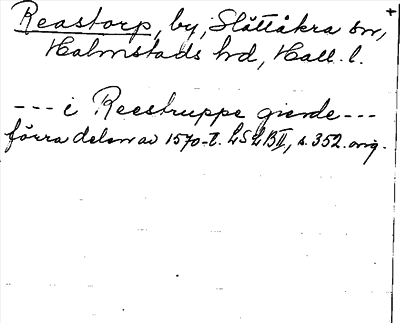 Reastorp, by, Slättåkra sn,
Halmstads hd, Hall. l.
--- i Reestruppe gierde ---
förra delen av 1570-t. LSLBII, s. 352. orig.